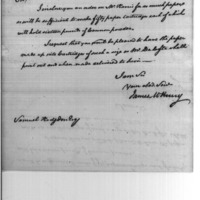 I enclose you an order on Mr Harris for as much paper
as will be sufficient to make fifty paper cartridges each of which
will hold sixteen pounds of Cannon powder.
I request that you would be pleased to have the paper
made up into Cartridges of such a size as Mr De Costa shall
point out and when made returned to him —
I am Sir
Your obed Servt
James McHenry
Samuel Hodgdon Esq